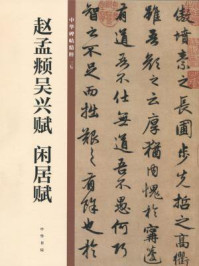 中华碑帖精粹
赵孟頫吴兴赋 闲居赋
中华书局
傲墳素之長圃步先哲之高衢
雖吾顏之云厚猶内愧於甯蘧
有道吾不仕無道吾不愚何巧
智之不足而拙艱之有餘也於